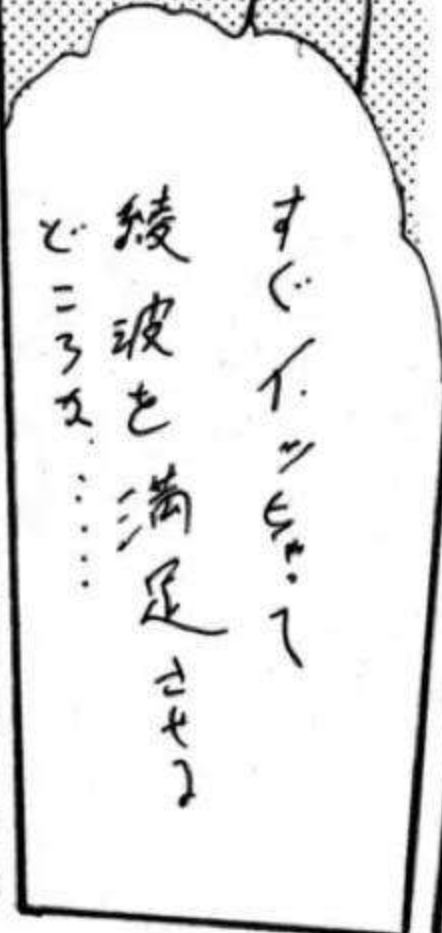 すぐイッちゃって
綾波を満足させる
どころか……